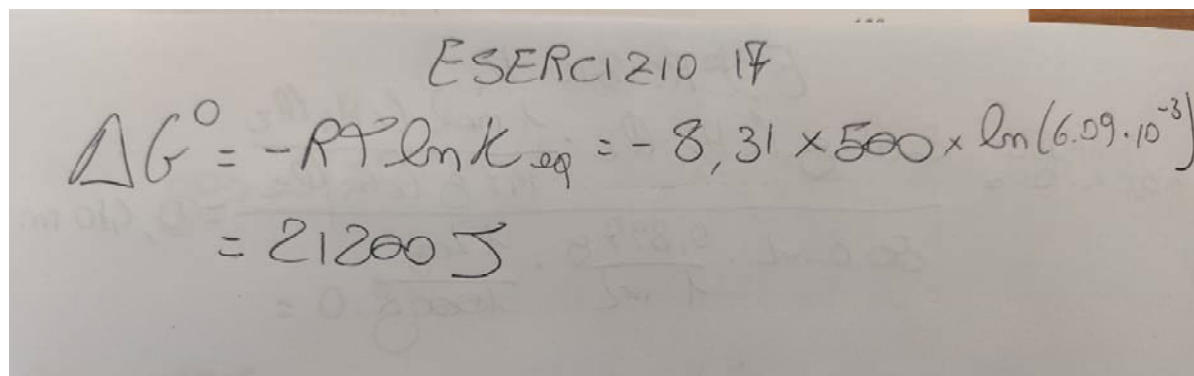 ESERCIZIO 17
ΔG° = -RT ln K eq = - 8,31 × 500 × ln(6.09·10⁻³)
= 21200 J